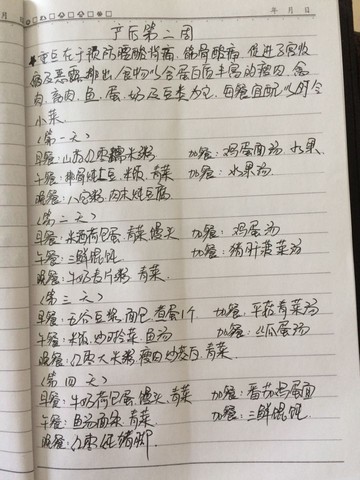 年 月 日
产后第二周
★重点在于预防腰酸背痛，骨酸痛，促进子宫收
缩及恶露排出，食物以含蛋白质丰富的瘦肉、禽
肉、鱼、蛋、奶及豆类为主，每餐宜配以时令
小菜.
(第一天)
早餐：山药红枣糯米粥 加餐：鸡蛋面汤、水果、
午餐：排骨炖土豆、米饭、青菜 加餐：水果汤
晚餐：八宝粥、肉末炖豆腐
(第二天)
早餐：米酒荷包蛋、青菜、馒头 加餐：鸡蛋汤
午餐：三鲜馄饨 加餐：猪肝菠菜汤
晚餐：牛奶麦片粥、青菜.
(第三天)
早餐：五谷豆浆、面包、煮蛋1个 加餐：平菇青菜汤
午餐：米饭、炒时令菜、鱼汤 加餐：丝瓜蛋汤
晚餐：红枣大米粥、瘦肉炒、青菜.
(第四天)
早餐：牛奶荷包蛋、馒头、青菜 加餐：番茄鸡蛋面
午餐：鱼汤面条、青菜 加餐：三鲜馄饨.
晚餐：红枣炖猪脚.